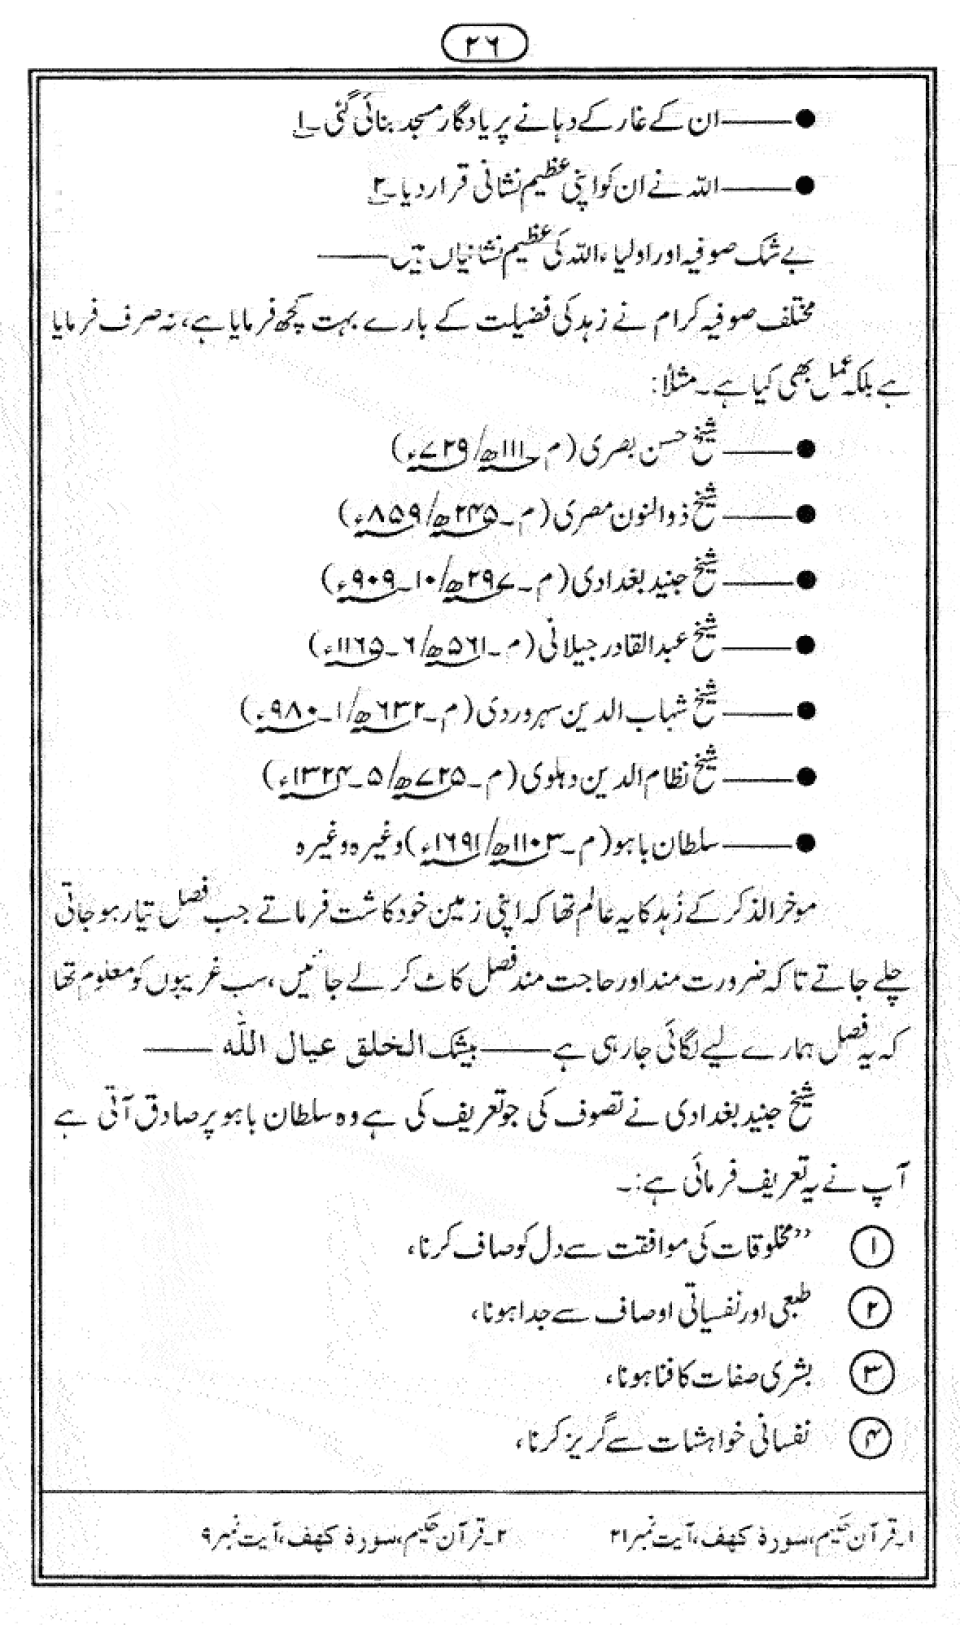 ۲۶
●——— ان کے غار کے دہانے پر یادگار مسجد بنائی گئی۔۱
●——— اللہ نے ان کو اپنی عظیم نشانی قرار دیا۔۲
بے شک صوفیہ اور اولیاء اللہ کی عظیم نشانیاں ہیں———
مختلف صوفیہ کرام نے زہد کی فضیلت کے بارے بہت کچھ فرمایا ہے، نہ صرف فرمایا
ہے بلکہ عمل بھی کیا ہے۔ مثلاً:
●——— شیخ حسن بصری (م۔۱۱۱ھ/۷۲۹ء)
●——— شیخ ذوالنون مصری (م۔۲۴۵ھ/۸۵۹ء)
●——— شیخ جنید بغدادی (م۔۲۹۷ھ/۱۰۔۹۰۹ء)
●——— شیخ عبدالقادر جیلانی (م۔۵۶۱ھ/۶۔۱۱۶۵ء)
●——— شیخ شہاب الدین سہروردی (م۔۶۳۲ھ/۱۔۹۸۰ء)
●——— شیخ نظام الدین دہلوی (م۔۷۲۵ھ/۵۔۱۳۲۴ء)
●——— سلطان باہو (م۔۱۱۰۳ھ/۱۶۹۱ء) وغیرہ وغیرہ
موخر الذکر کے زُہد کا یہ عالم تھا کہ اپنی زمین خود کاشت فرماتے جب فصل تیار ہو جاتی
چلے جاتے تا کہ ضرورت مند اور حاجت مند فصل کاٹ کر لے جائیں، سب غریبوں کو معلوم تھا
کہ یہ فصل ہمارے لیے لگائی جا رہی ہے——— بیشک الخلق عیال اللہ ———
شیخ جنید بغدادی نے تصوف کی جو تعریف کی ہے وہ سلطان باہو پر صادق آتی ہے
آپ نے یہ تعریف فرمائی ہے:۔
۱ ”مخلوقات کی موافقت سے دل کو صاف کرنا،
۲ طبعی اور نفسیاتی اوصاف سے جدا ہونا،
۳ بشری صفات کا فنا ہونا،
۴ نفسانی خواہشات سے گریز کرنا،
۱۔ قرآن حکیم، سورۂ کہف، آیت نمبر ۲۱ ۲۔ قرآن حکیم، سورۂ کہف، آیت نمبر ۹